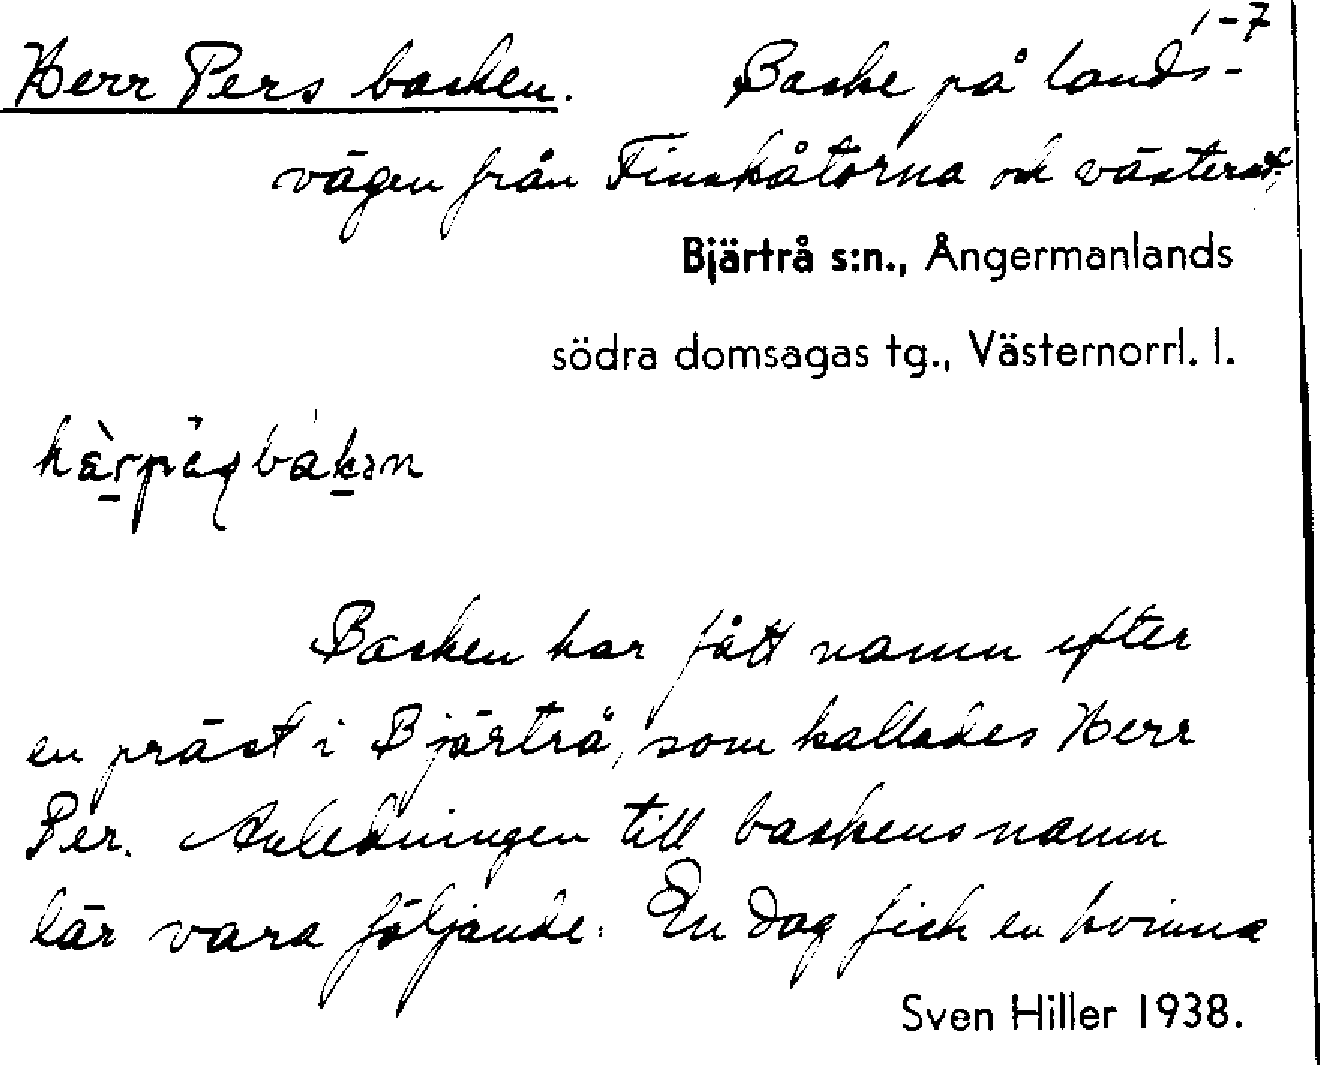 1-7
Herr Pers backen. Backe på lands-
vägen från Finnkåtorna och västerut.
Bjärtrå s:n., Ångermanlands
södra domsagas tg., Västernorrl. l.
Backen har fått namn efter
en präst i Bjärtrå, som kallades Herr
Per. Anledningen till backens namn
lär vara följande: En dag fick en kvinna
Sven Hiller 1938.